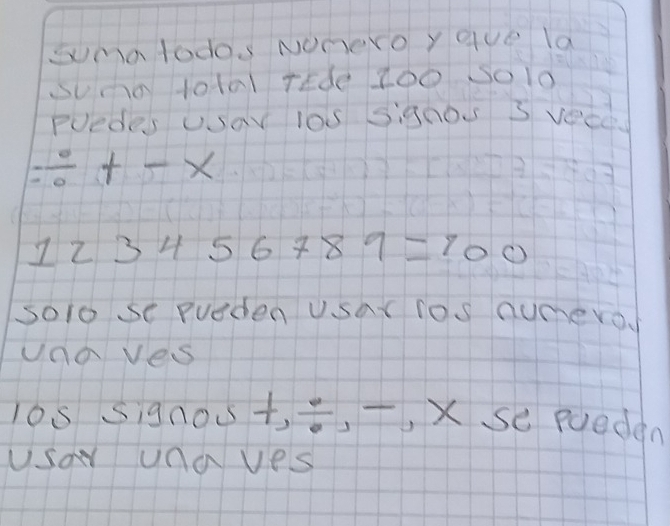 suma todos Numero y que la
suma total te de 100 solo
puedes usar los signos 3 veces
÷ + - x
1 2 3 4 5 6 7 8 9 = 100
solo se pueden usar los numeros
una ves
los signos +, ÷, -, x se pueden
usar una ves